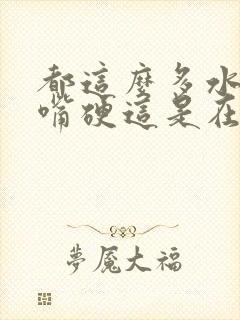 都這麼多水
嘴硬這是在
夢魘大福